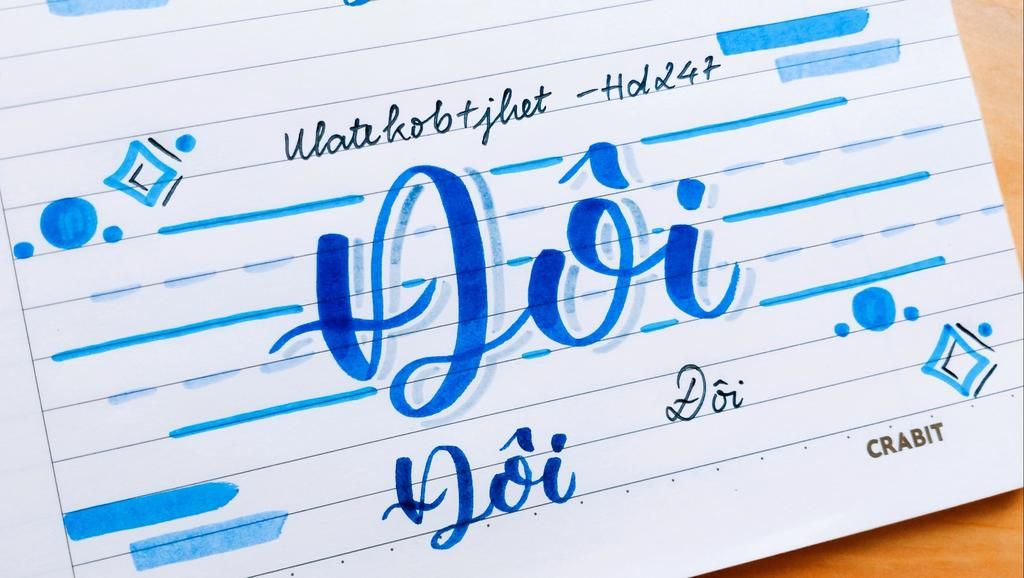 Ulatrkobtjhet -Hd247
Đôi
Đôi
Đôi
CRABIT